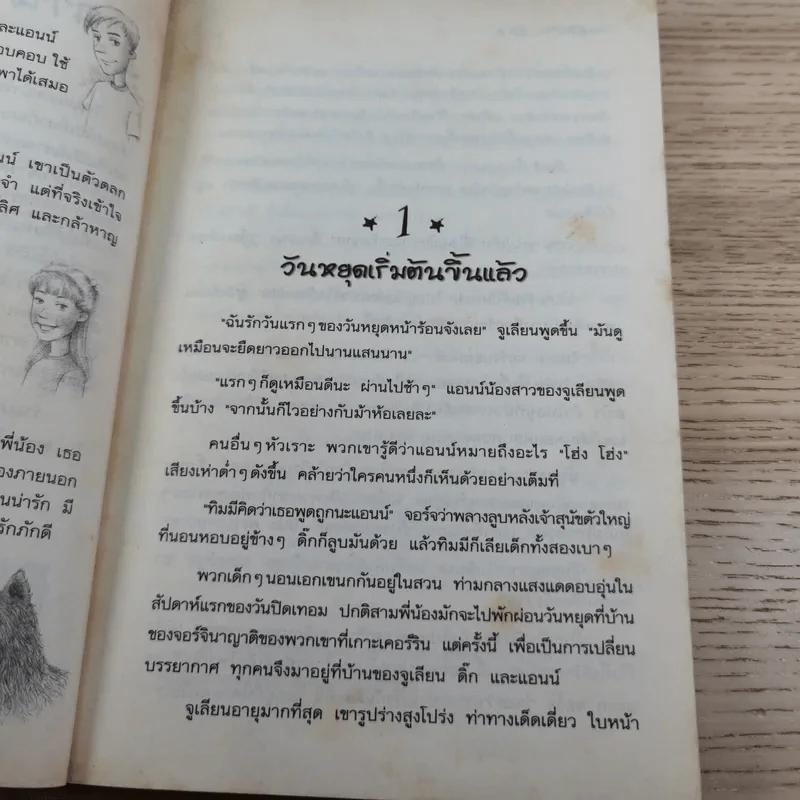 ละแอนน์
อบคอบ ใช้
พาได้เสมอ
นน์ เขาเป็นตัวตลก
จำ แต่ที่จริงเข้าใจ
ลิศ และกล้าหาญ
พี่น้อง เธอ
องภายนอก
นน่ารัก มี
รักภักดี
1
วันหยุดเริ่มต้นขึ้นแล้ว
"ฉันรักวันแรกๆของวันหยุดหน้าร้อนจังเลย" จูเลียนพูดขึ้น "มันดู
เหมือนจะยืดยาวออกไปนานแสนนาน"
"แรกๆก็ดูเหมือนดีนะ ผ่านไปช้าๆ" แอนน์น้องสาวของจูเลียนพูด
ขึ้นบ้าง "จากนั้นก็ไวอย่างกับม้าห้อเลยละ"
คนอื่นๆหัวเราะ พวกเขารู้ดีว่าแอนน์หมายถึงอะไร "โฮ่ง โฮ่ง"
เสียงเห่าต่ำๆดังขึ้น คล้ายว่าใครคนหนึ่งก็เห็นด้วยอย่างเต็มที่
"ทิมมีคิดว่าเธอพูดถูกนะแอนน์" จอร์จว่าพลางลูบหลังเจ้าสุนัขตัวใหญ่
ที่นอนหอบอยู่ข้างๆ ดิ๊กก็ลูบมันด้วย แล้วทิมมีก็เลียเด็กทั้งสองเบาๆ
พวกเด็กๆนอนเอกเขนกกันอยู่ในสวน ท่ามกลางแสงแดดอบอุ่นใน
สัปดาห์แรกของวันปิดเทอม ปกติสามพี่น้องมักจะไปพักผ่อนวันหยุดที่บ้าน
ของจอร์จินาญาติของพวกเขาที่เกาะเคอร์ริน แต่ครั้งนี้ เพื่อเป็นการเปลี่ยน
บรรยากาศ ทุกคนจึงมาอยู่ที่บ้านของจูเลียน ดิ๊ก และแอนน์
จูเลียนอายุมากที่สุด เขารูปร่างสูงโปร่ง ท่าทางเด็ดเดี่ยว ใบหน้า